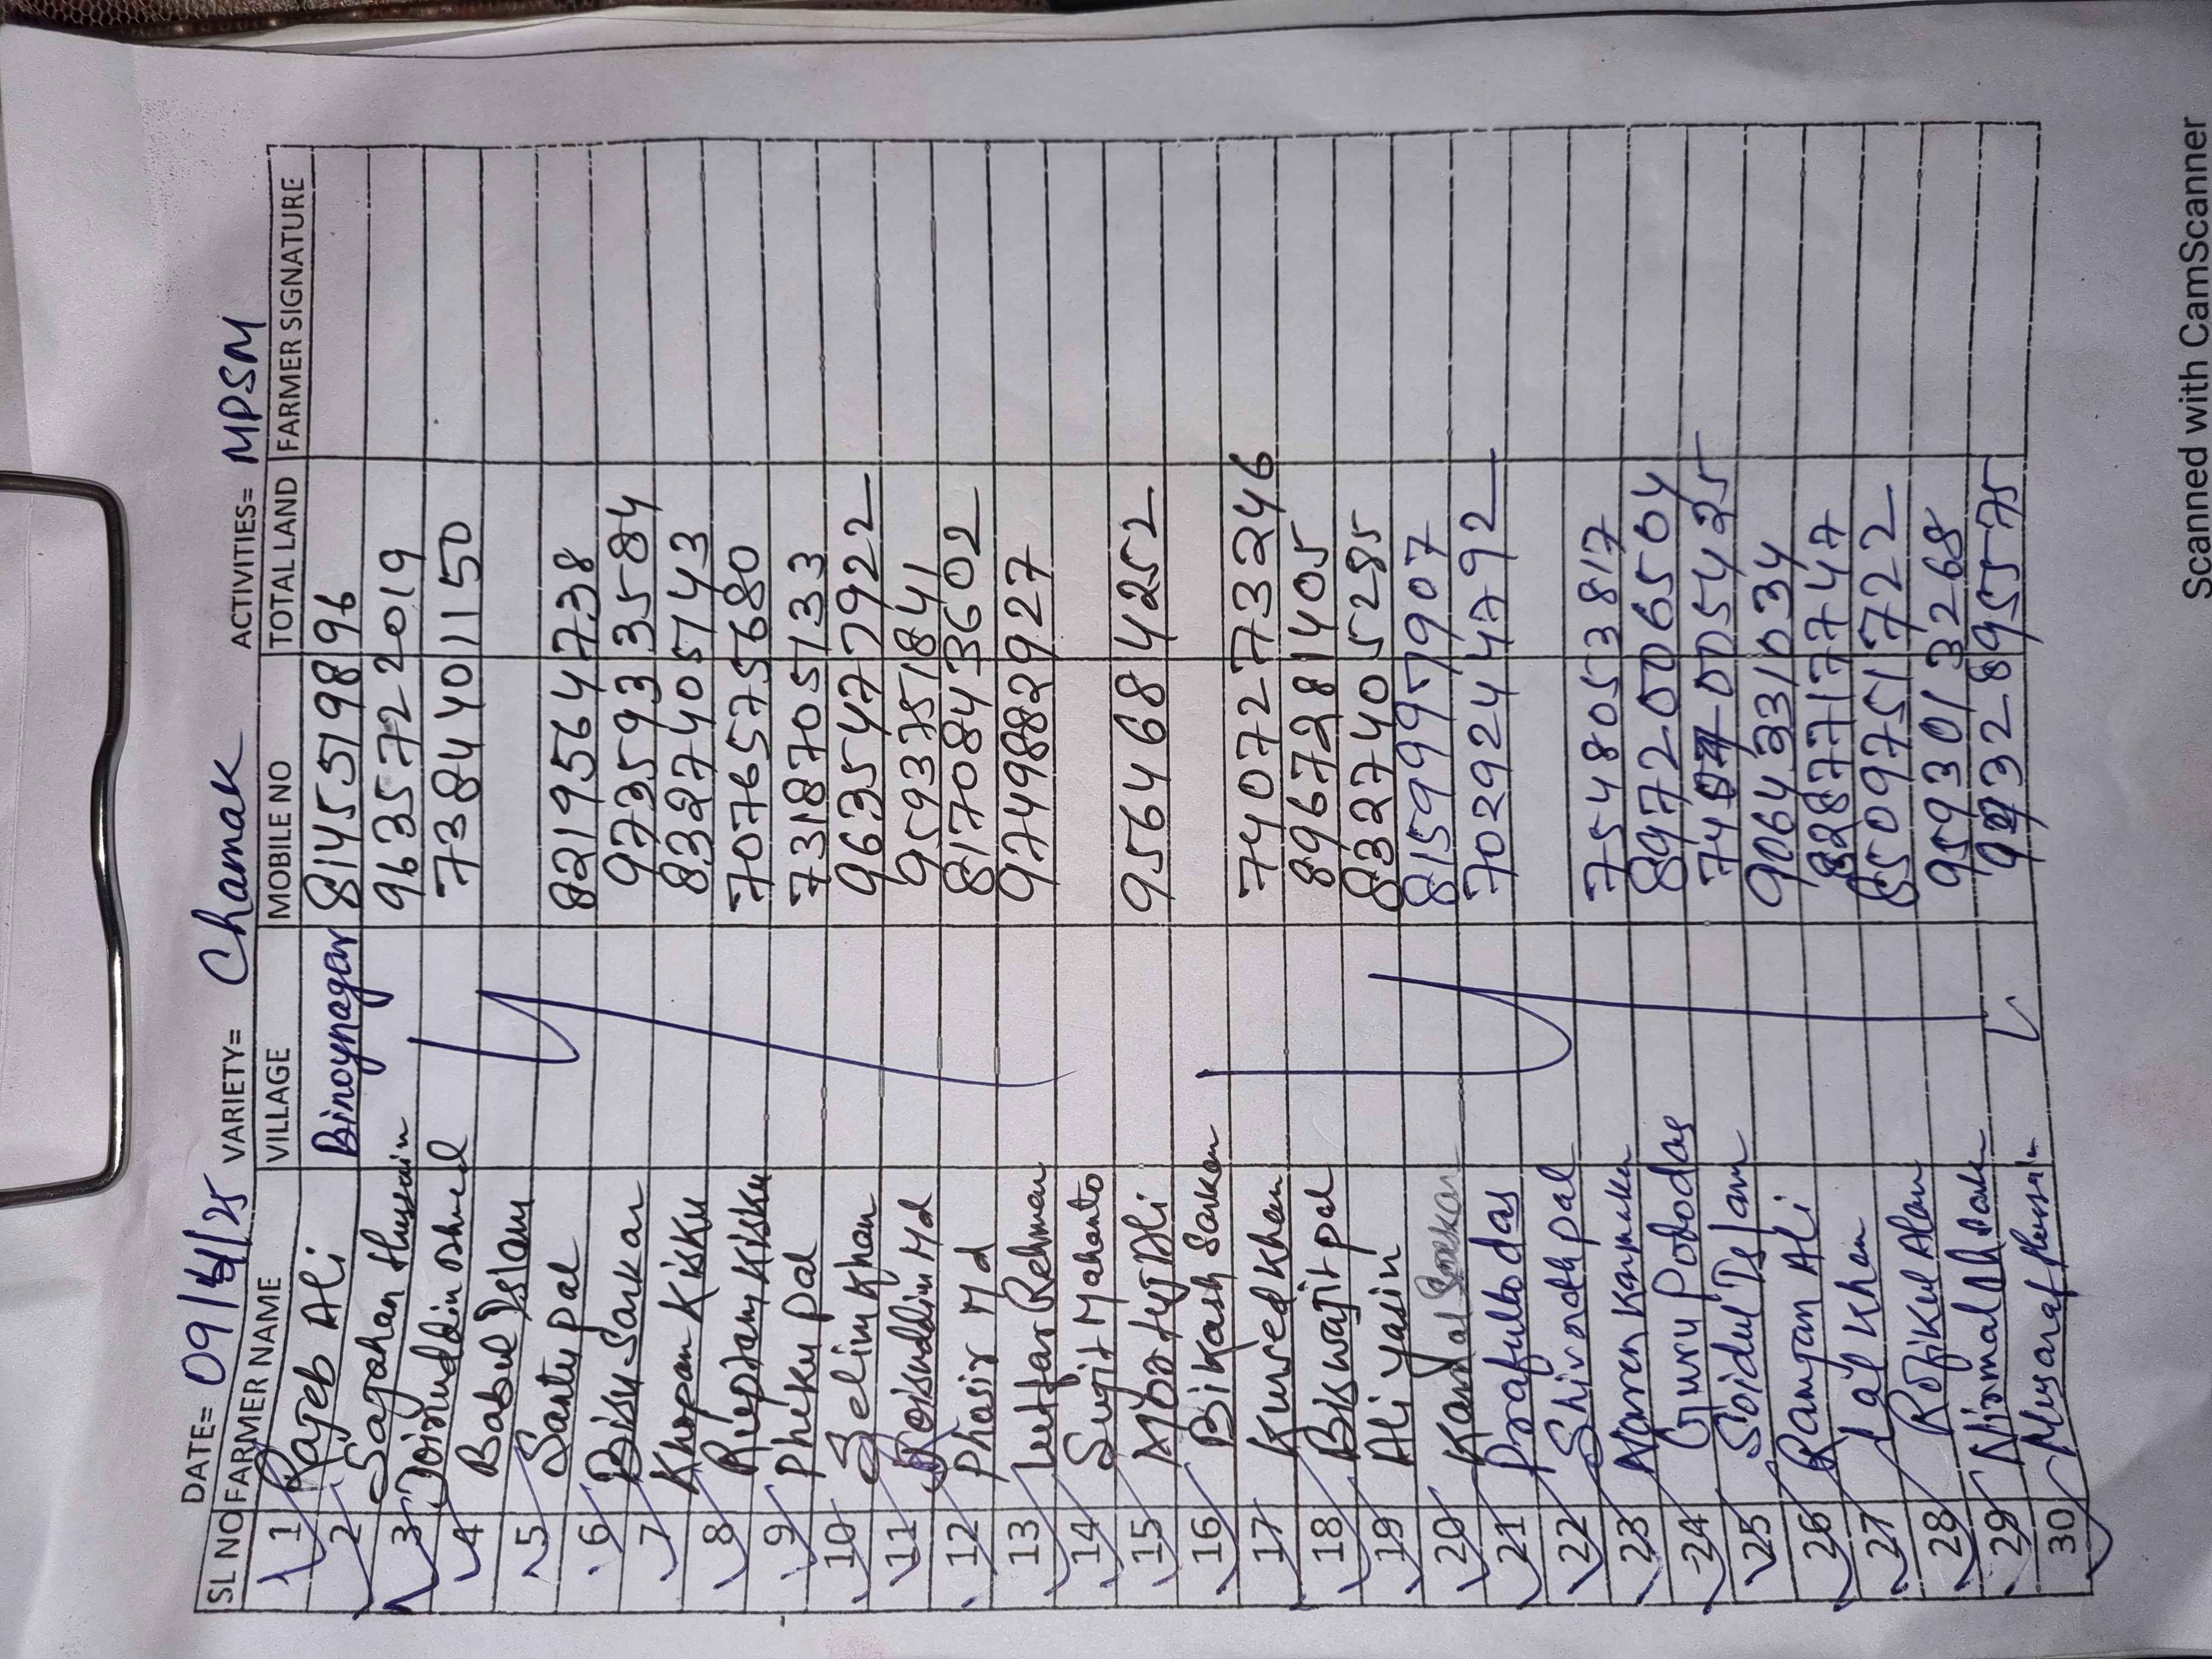 DATE= 09/4/25 VARIETY= Chamak ACTIVITIES= MPSM
SL NO FARMER NAME VILLAGE MOBILE NO TOTAL LAND FARMER SIGNATURE
1 Rajeb Ali Binoynagar 8145519896
2 Sajahan Hussain 9635722019
3 Joinuddin Ahmed 7384401150
4 Babul Islam
5 Santu pal 8219564738
6 Bisu Sarkar 9735933584
7 Khopan Kisku 8327405743
8 Kisku 7076575680
9 Phiku pal 7318705133
10 Selim Khan 9635477922
11 Roisuddin Md 9593751841
12 Phasir Md 8170843602
13 Lutfar Rehman 9749882927
14 Sujit Mahanto
15 Ali 9564684252
16 Bikash Sarkar
17 Kursed Khan
18 Biswajit pal 8967281405
19 Ali Yasin 8327405285
20 Kangal Sarkar
21 Prafulla das 7029244792
22 Shivnath pal
23 Naren Karmakar 7548053817
24 Guru Podo das 8972006504
25 Soidul Islam
26 Ramjan Ali 9064331034
27 Lal Khan
28 Rofikul Alam 8509751722
29 Nirmal 9593013268
30 Musaraf Hussain
Scanned with CamScanner